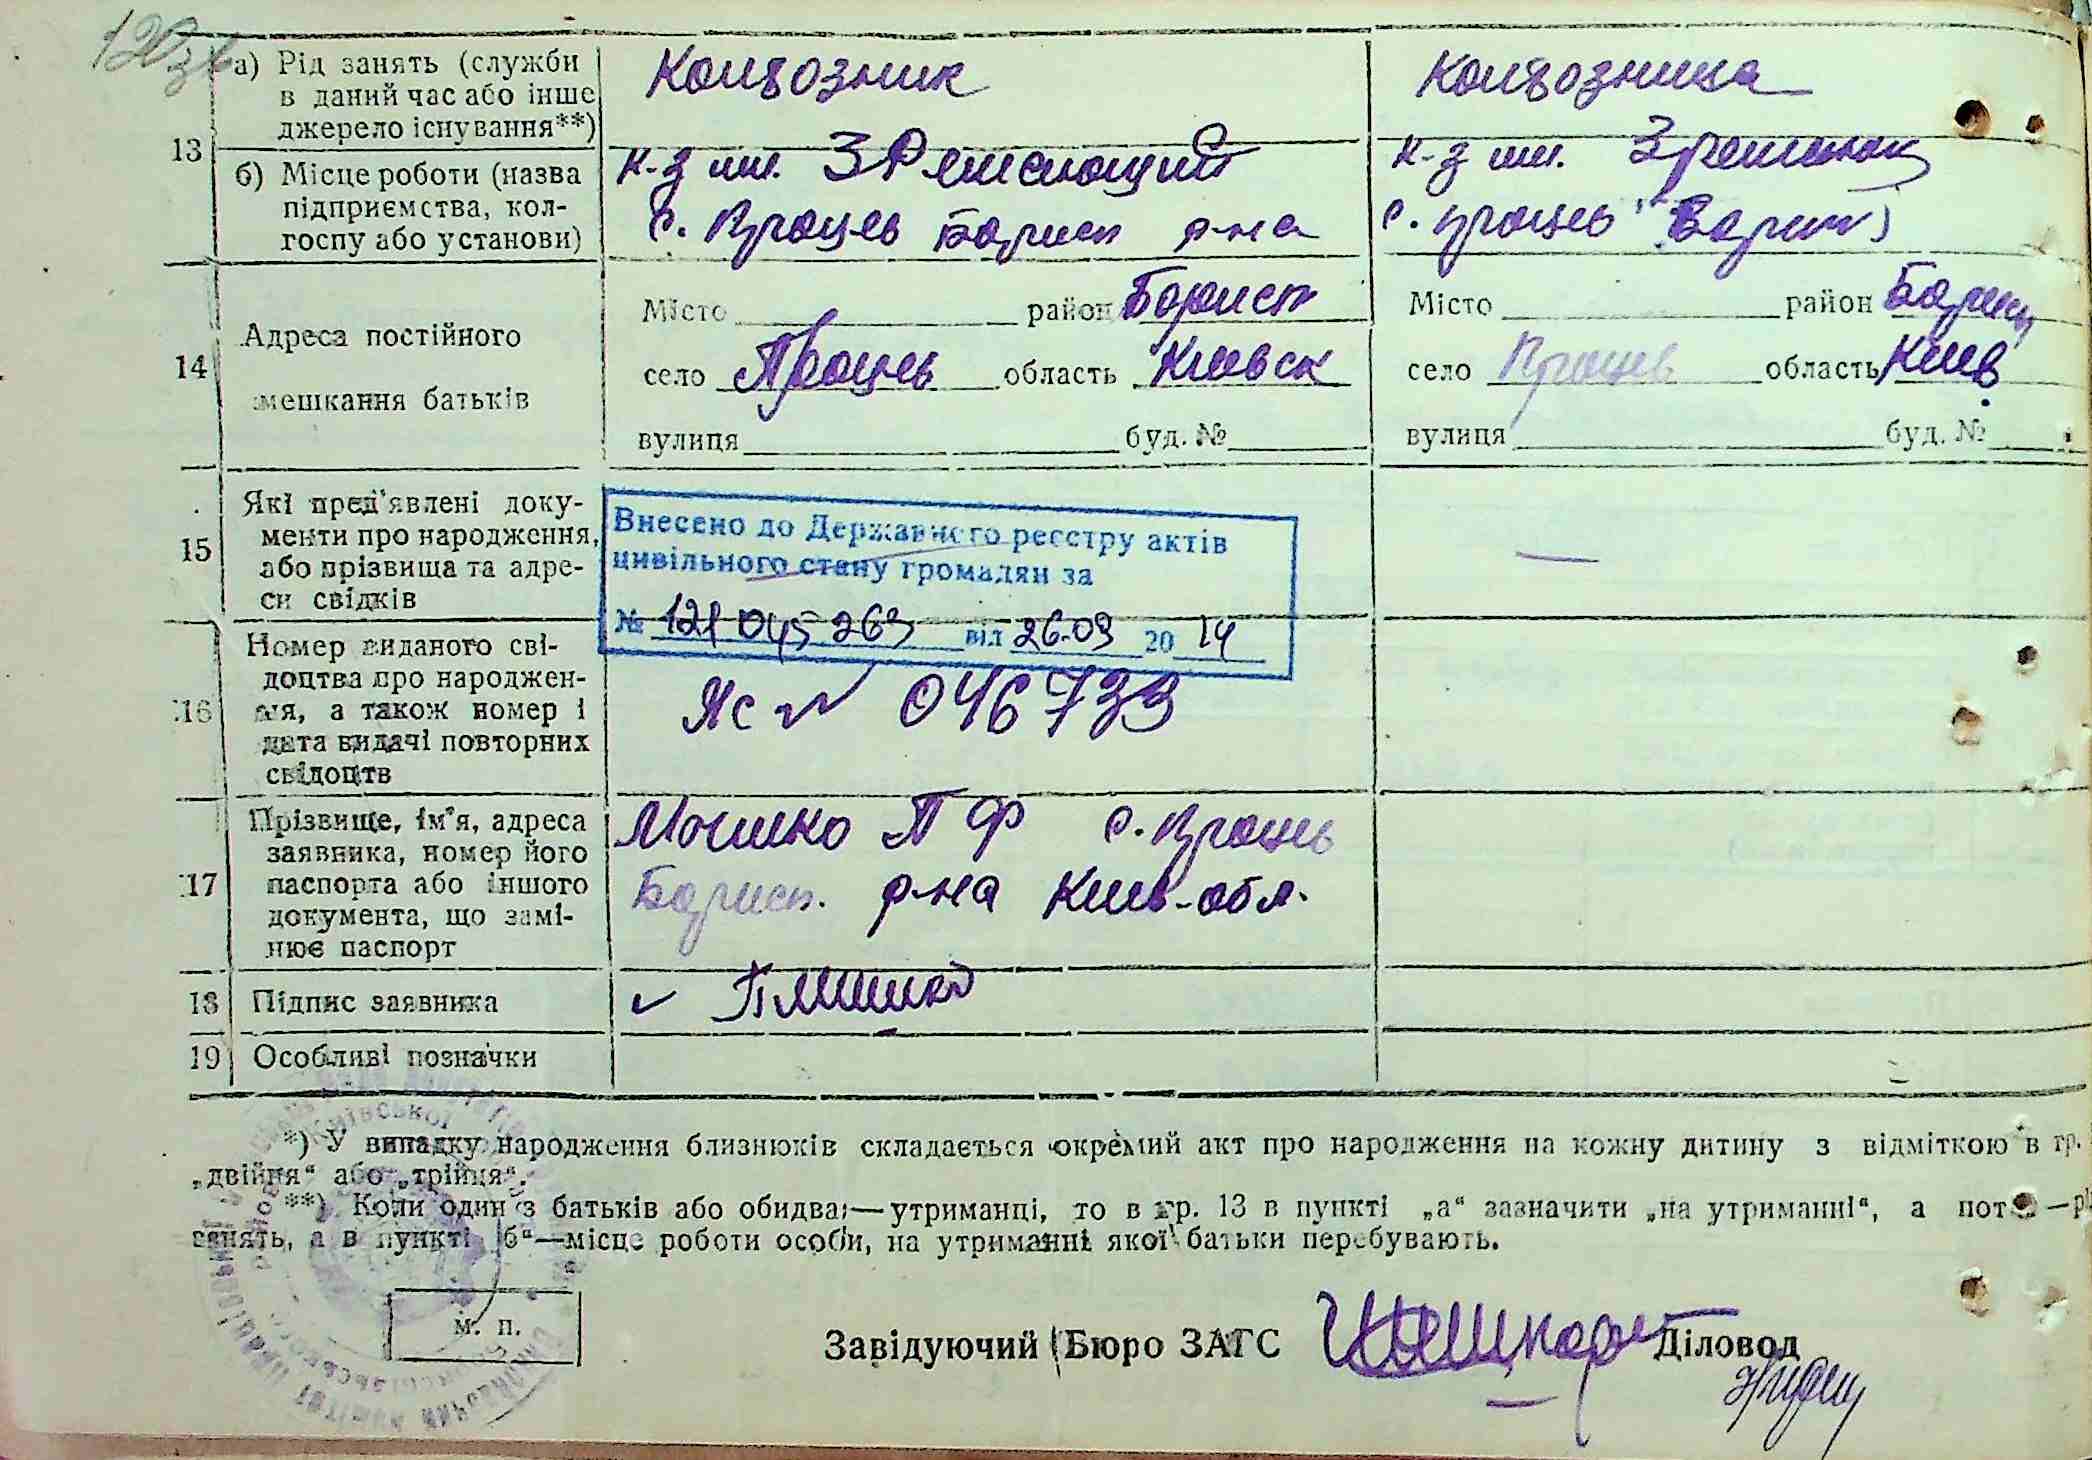 120зв
13
а) Рід занять (служби
в даний час або інше
джерело існування**)
Колгозник
Колгозница
б) Місце роботи (назва
підприємства, кол-
госпу або установи)
к-з им.
с. Процев Борисп р-на
к-з им.
с. Процев Борисп
14
Адреса постійного
мешкання батьків
Місто район Борисп
село Процев область Киевск
вулиця буд. №
Місто район Борисп
село Процев область Киев.
вулиця буд. №
15
Які пред'явлені доку-
менти про народження,
або прізвища та адре-
си свідків
—
Внесено до Державного реєстру актів
цивільного стану громадян за
№ 121 045 263 від 26.03 2014
16
Номер виданого сві-
доцтва про народжен-
ня, а також номер і
дата видачі повторних
свідоцтв
Яс № 046733
17
Прізвище, ім'я, адреса
заявника, номер його
паспорта або іншого
документа, що замі-
нює паспорт
П Ф с. Процев
Борисп. р-на Киев-обл.
18
Підпис заявника
19
Особливі позначки
*) У випадку народження близнюків складається окремий акт про народження на кожну дитину з відміткою в гр.
„двійня“ або „трійця“.
**) Коли один з батьків або обидва—утриманці, то в гр. 13 в пункті „а“ зазначити „на утриманні“, а
занять, а в пункті „б“—місце роботи особи, на утриманні якої батьки перебувають.
м. п.
Завідуючий Бюро ЗАГС
Діловод
Київської